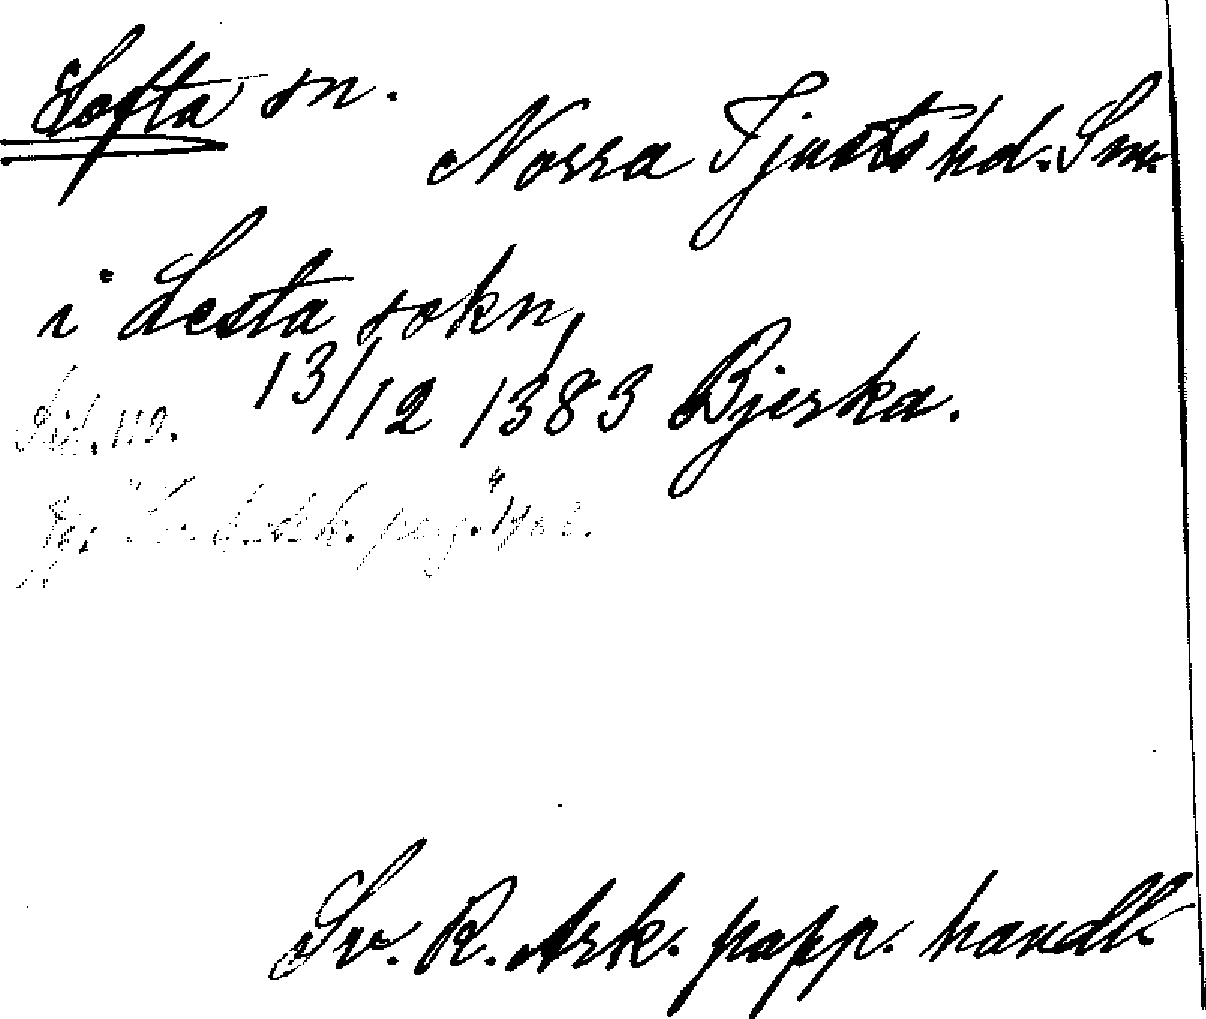 Lofta sn.
Norra Tjusts hd. Sm.
i Lesta sokn,
13/12 1383 Bjerka.
Sid. 110.
Sv. R. Ark. papp. handl.